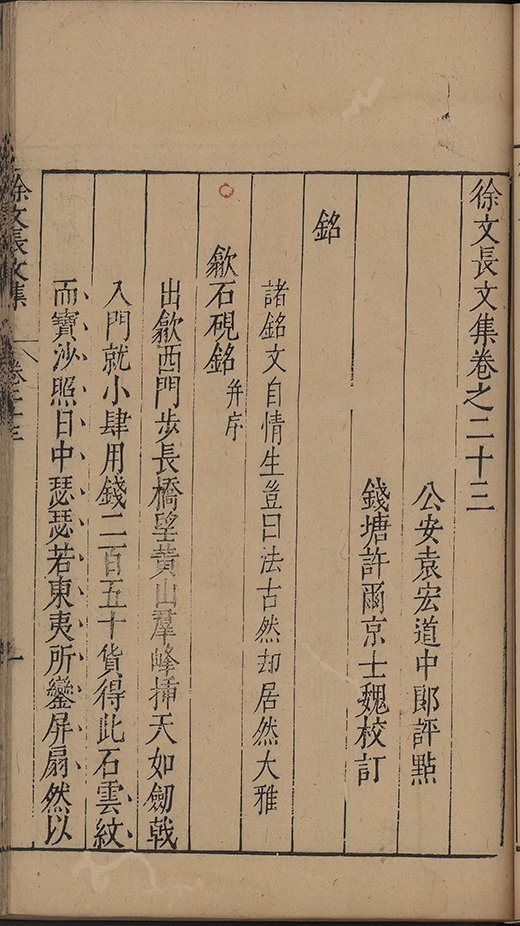 徐文長文集卷之二十三
公安袁宏道中郎評點
錢塘許爾京士魏校訂
銘
諸銘文自情生豈曰法古然却居然大雅
歙石硯銘 并序
出歙西門步長橋望黃山羣峰揷天如劒戟
入門就小肆用錢二百五十貨得此石雲紋
而寶沙照日中瑟瑟若東夷所鑾屏扇然以
徐文長文集 卷二十三 一